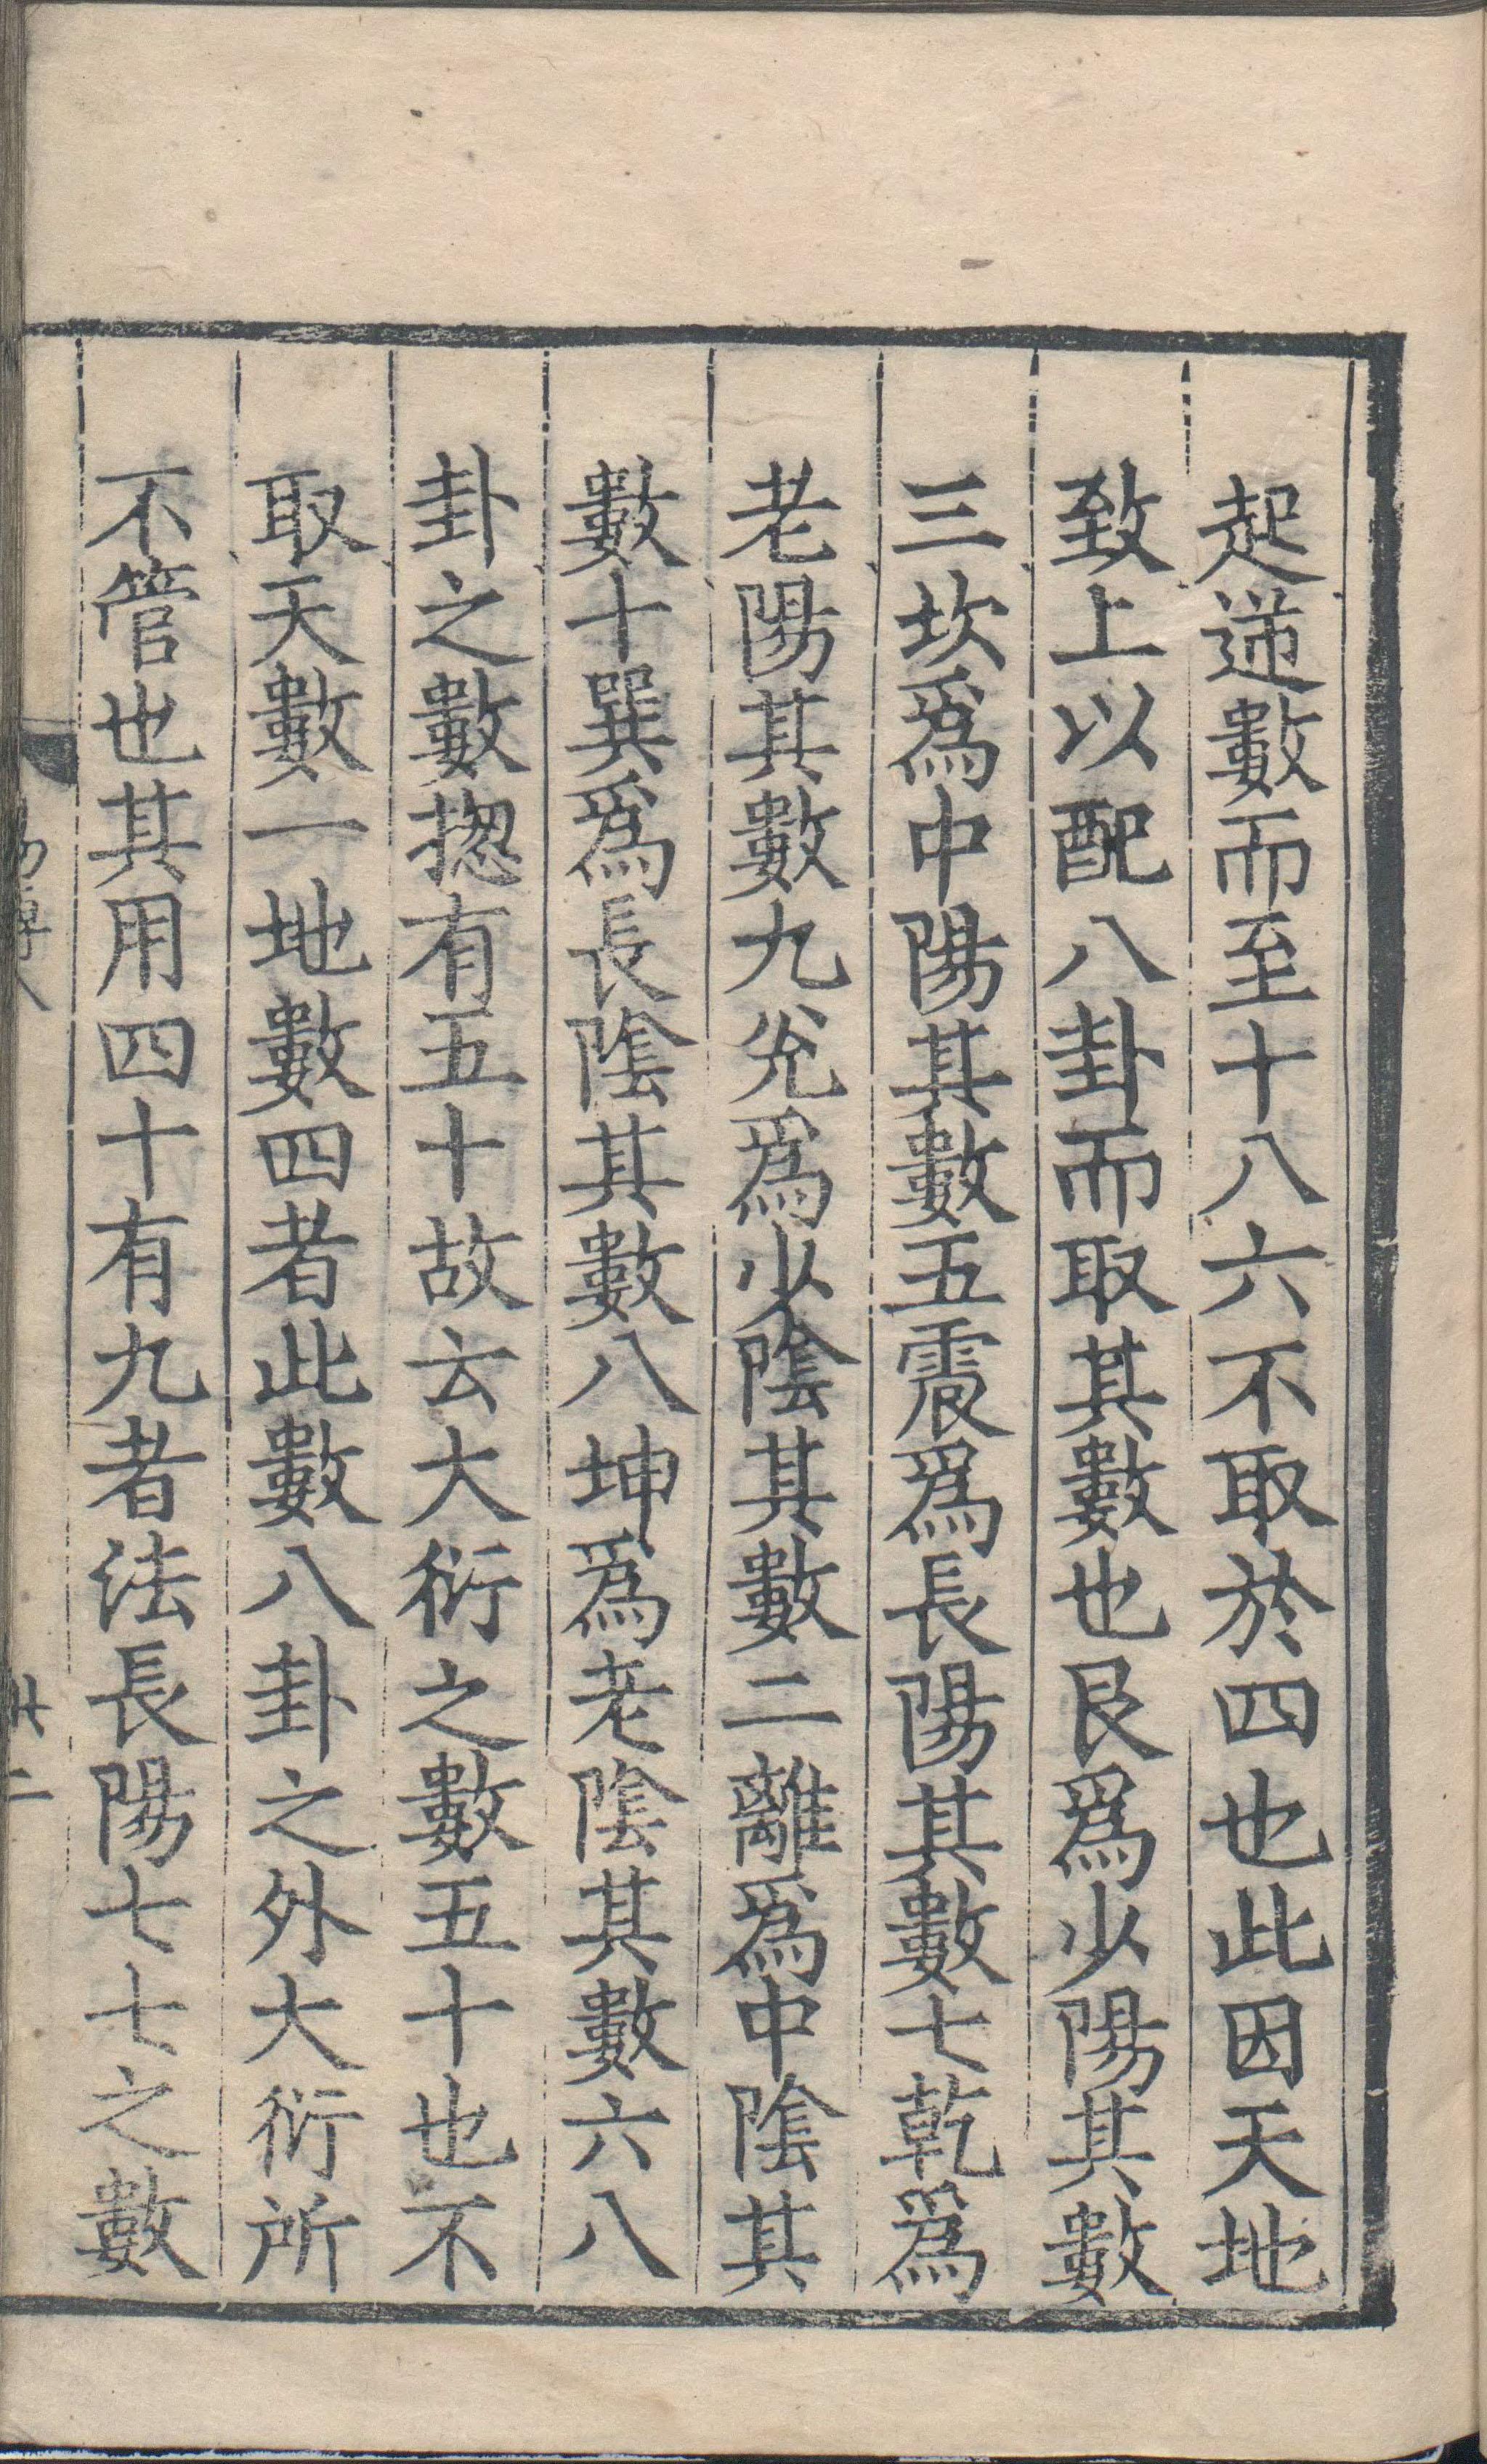 起逆數而至十八六不取於四也此因天地
致上以配八卦而取其數也艮爲少陽其數
三坎爲中陽其數五震爲長陽其數七乾爲
老陽其數九兊爲少陰其數二離爲中陰其
數十巽爲長陰其數八坤爲老陰其數六八
卦之數揔有五十故云大衍之數五十也不
取天數一地數四者此數八卦之外大衍所
不管也其用四十有九者法長陽七七之數